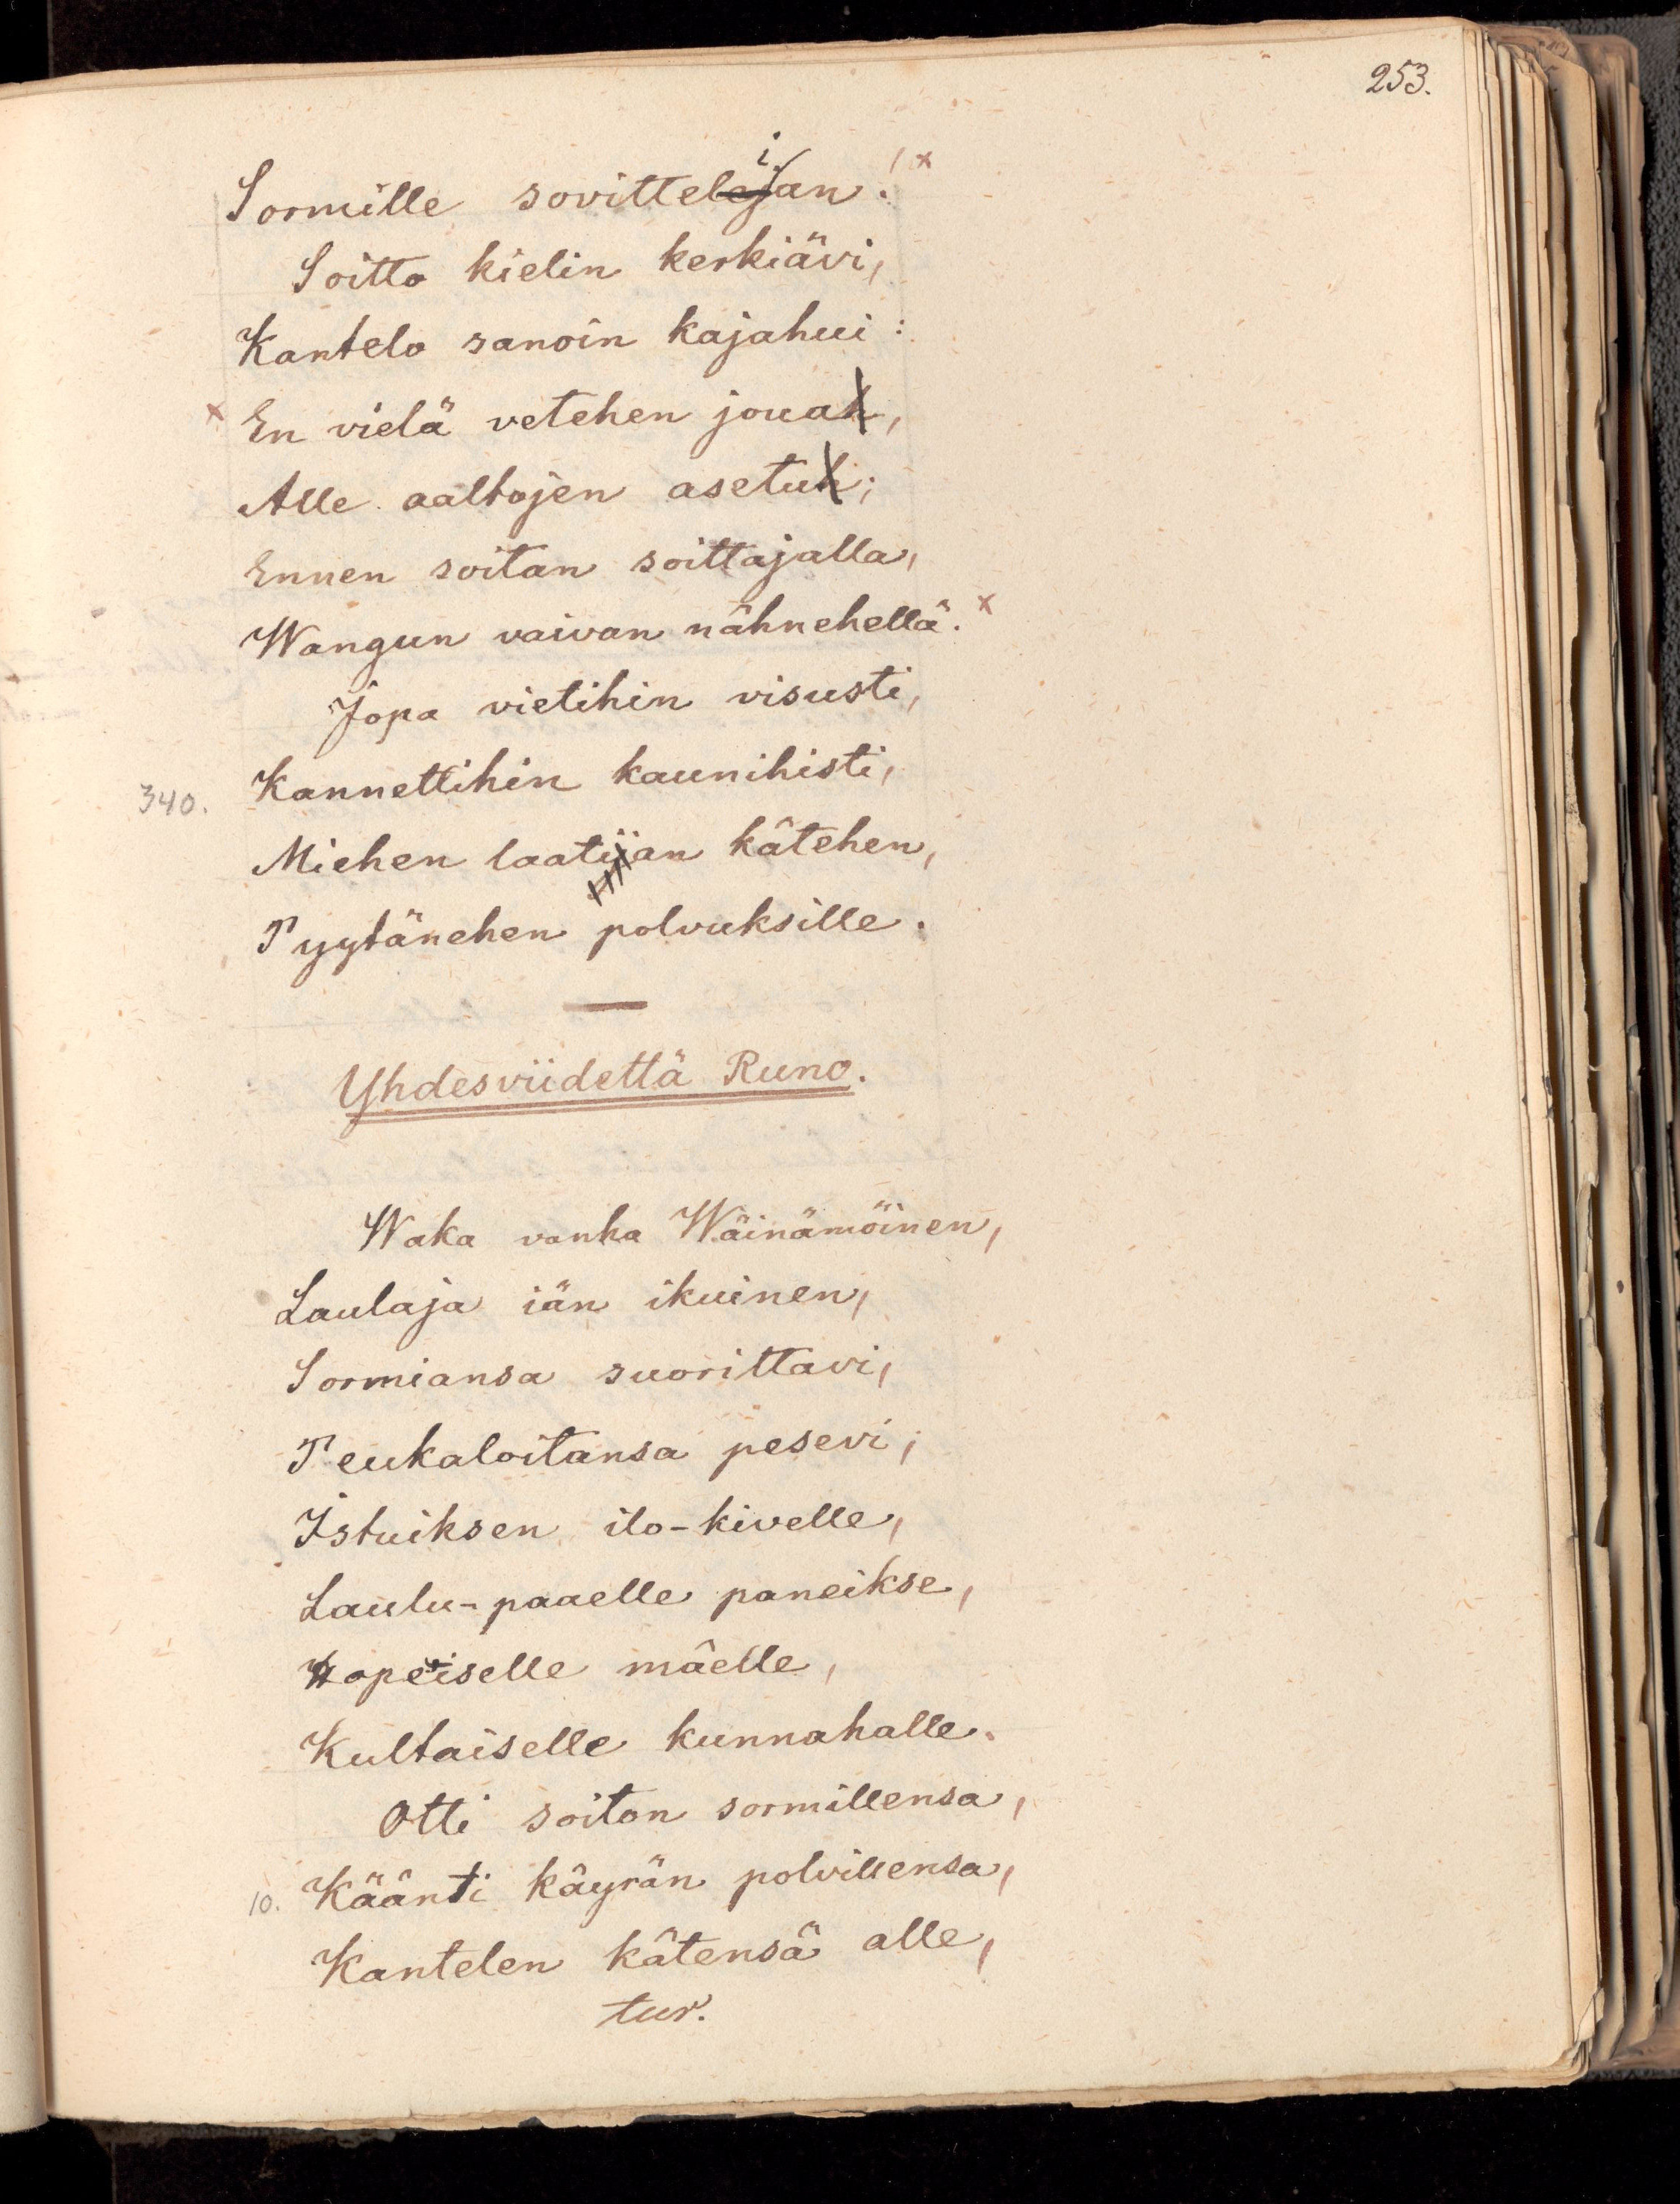 253.
Sormille sovittelijan.
Soitto kielin kerkiävi,
Kantelo sanoin kajahui:
En vielä vetehen joua,
Alle aaltojen asetu;
Ennen soitan soittajalla,
Wangun vaivan nähnehellä.
Jopa vietihin visusti,
340. Kannettihin kaunihisti,
Miehen laatijan kätehen,
Pyytänehen polvuksille.
Yhdesviidettä Runo.
Waka vanha Wäinämöinen,
Laulaja iän ikuinen,
Sormiansa suorittavi,
Peukaloitansa pesevi;
Istuiksen ilo-kivelle,
Laulu-paaelle paneikse,
Hopeiselle mäelle,
Kultaiselle kunnahalle.
Otti soiton sormillensa,
10. Käänti käyrän polvillensa,
Kantelen kätensä alle,
tur.